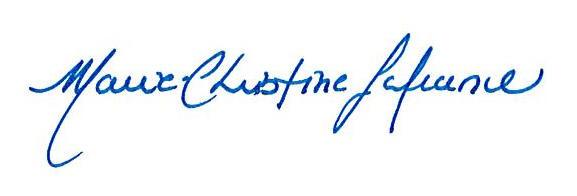 Marie-Christine Lafrance